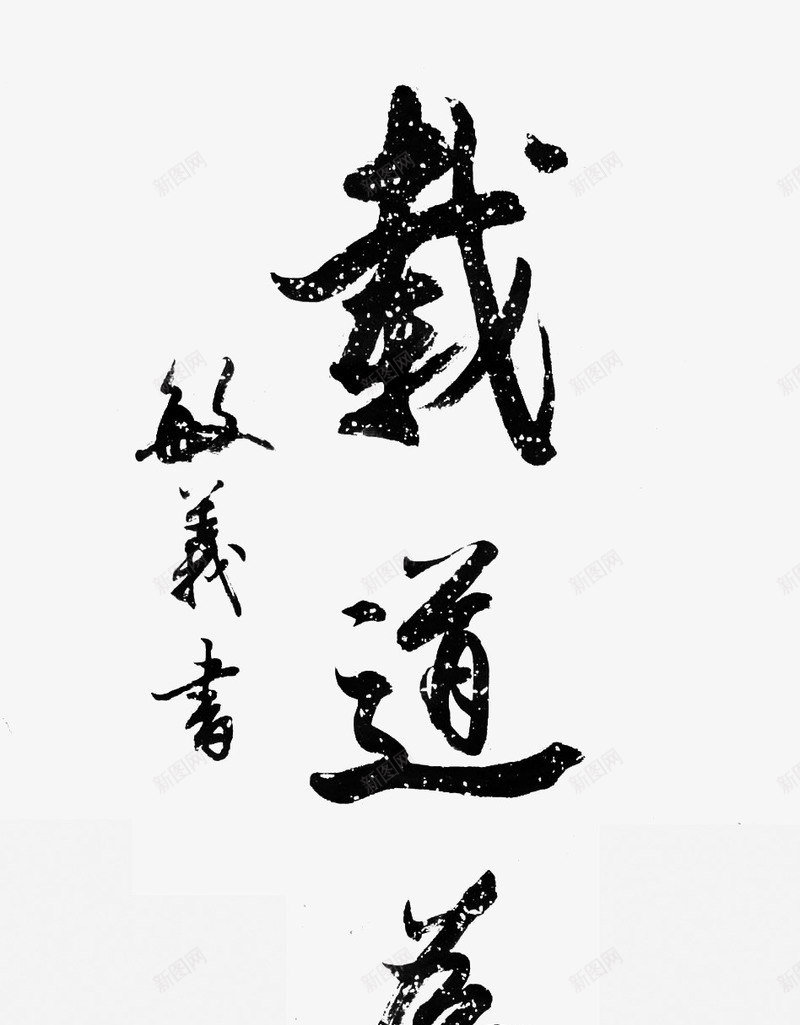 載道
敏義書
新图网